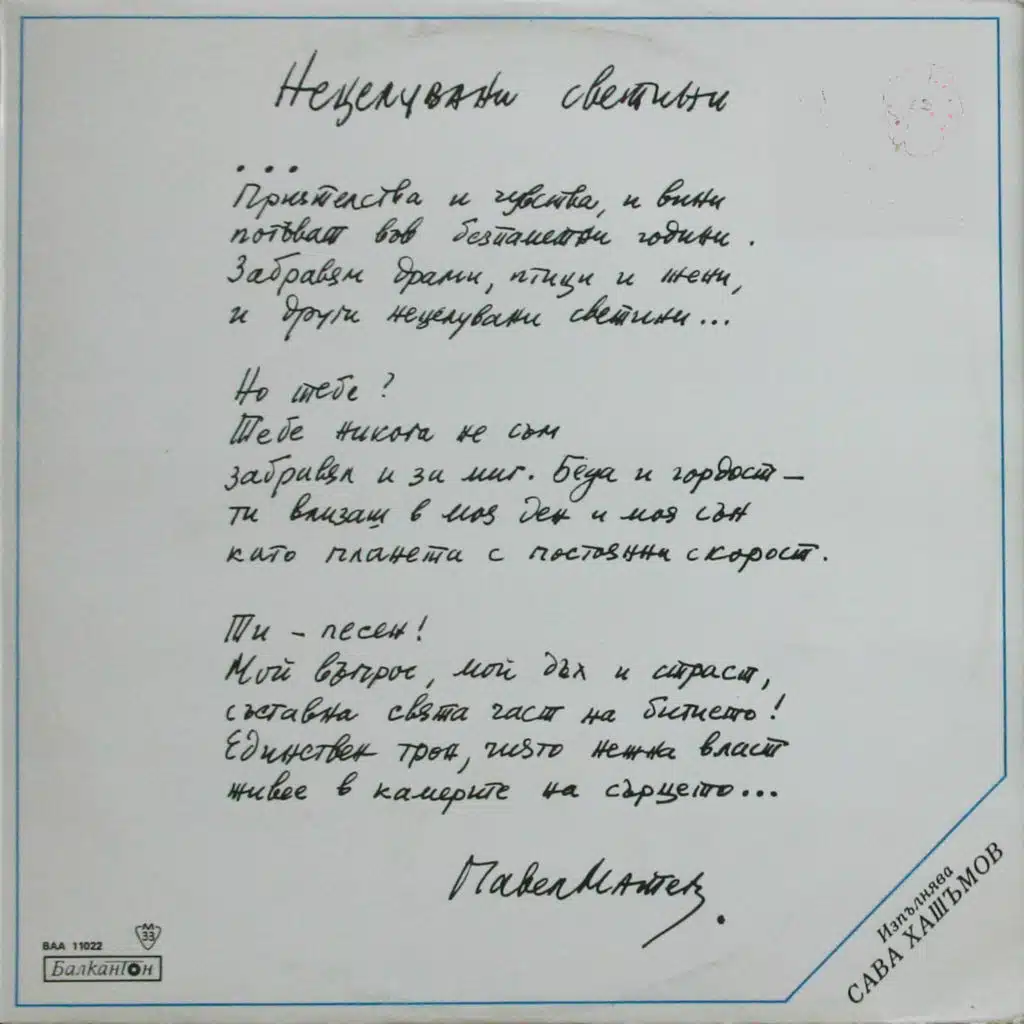 Нецелувани светини
...
Приятелства и чувства, и вини
потъват във безпаметни години.
Забравям драми, птици и жени,
и други нецелувани светини...
Но тебе?
Тебе никога не съм
забравял и за миг. Беда и гордост –
ти влизаш в моя ден и моя сън
като планета с постоянна скорост.
Ти – песен!
Мой въпрос, мой дъх и страст,
съставна свята част на битието!
Единствен трон, чиято нежна власт
живее в камерите на сърцето...
Павел Матев.
Изпълнява
САВА ХАШЪМОВ
М
33
ВАА 11022
Балкантон